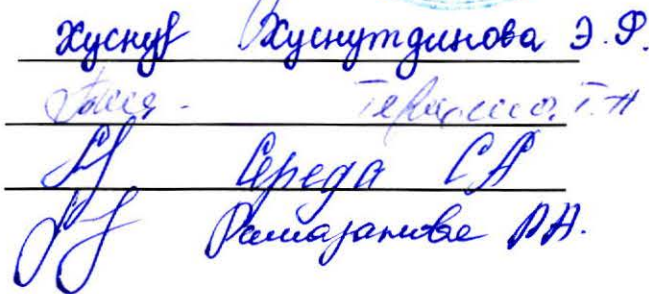 Хуснут Хуснутдинова Э.Ф.
Т.Н
Середа С А
Рамазанова Р.Н.